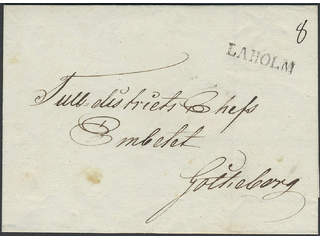 8
LAHOLM
Tull-districts Chefs
Embetet
Götheborg